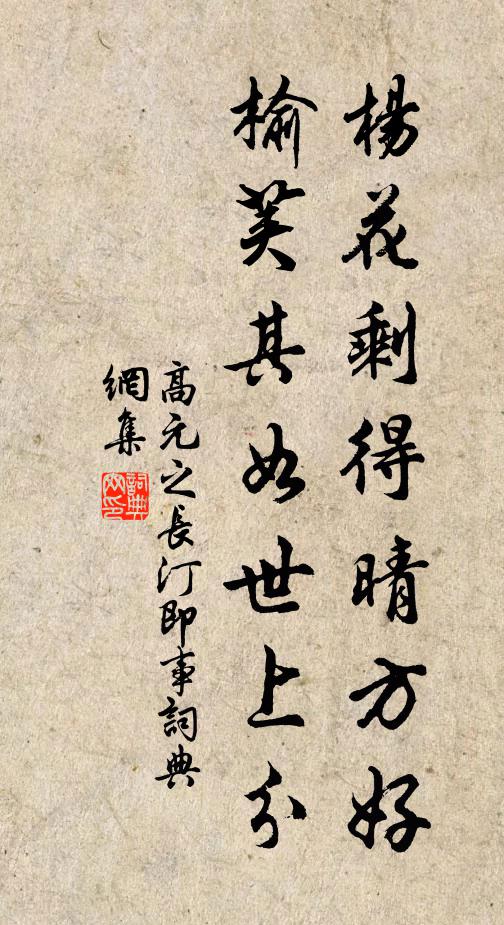 楊花剩得晴方好
榆荚其如世上分
高元之長汀即事詞典
網集
詞典網印